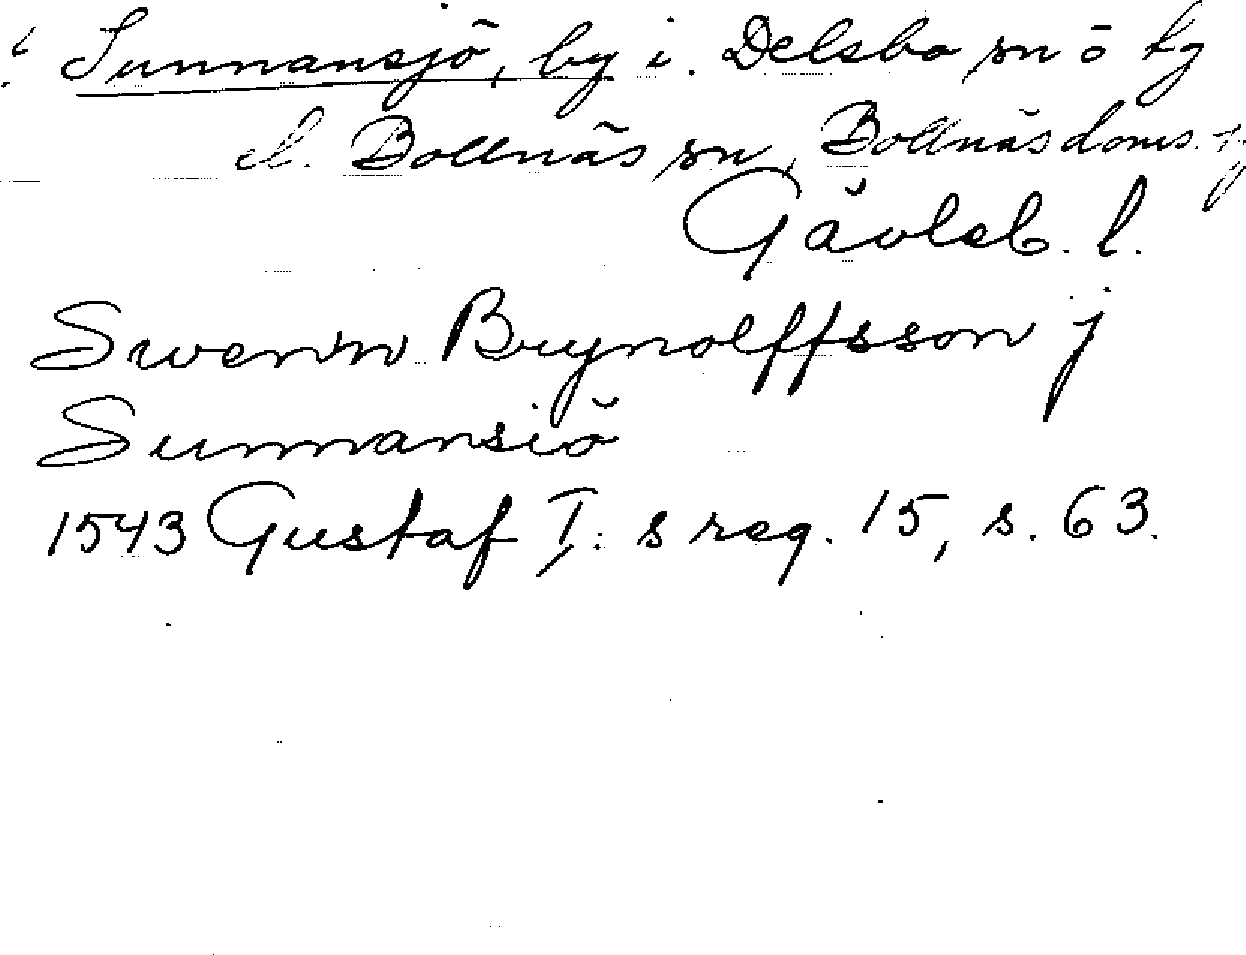 Sunnansjö, by i. Delsbo sn ö tg
el. Bollnäs sn, Bollnäs doms. tg
Gävleb. l.
Swenn Brynolffsson j
Sunnansiö
1543 Gustaf I:s reg. 15, s. 63.